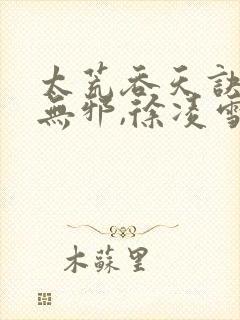 太荒吞天訣
無邪,徐凌雪
木蘇里